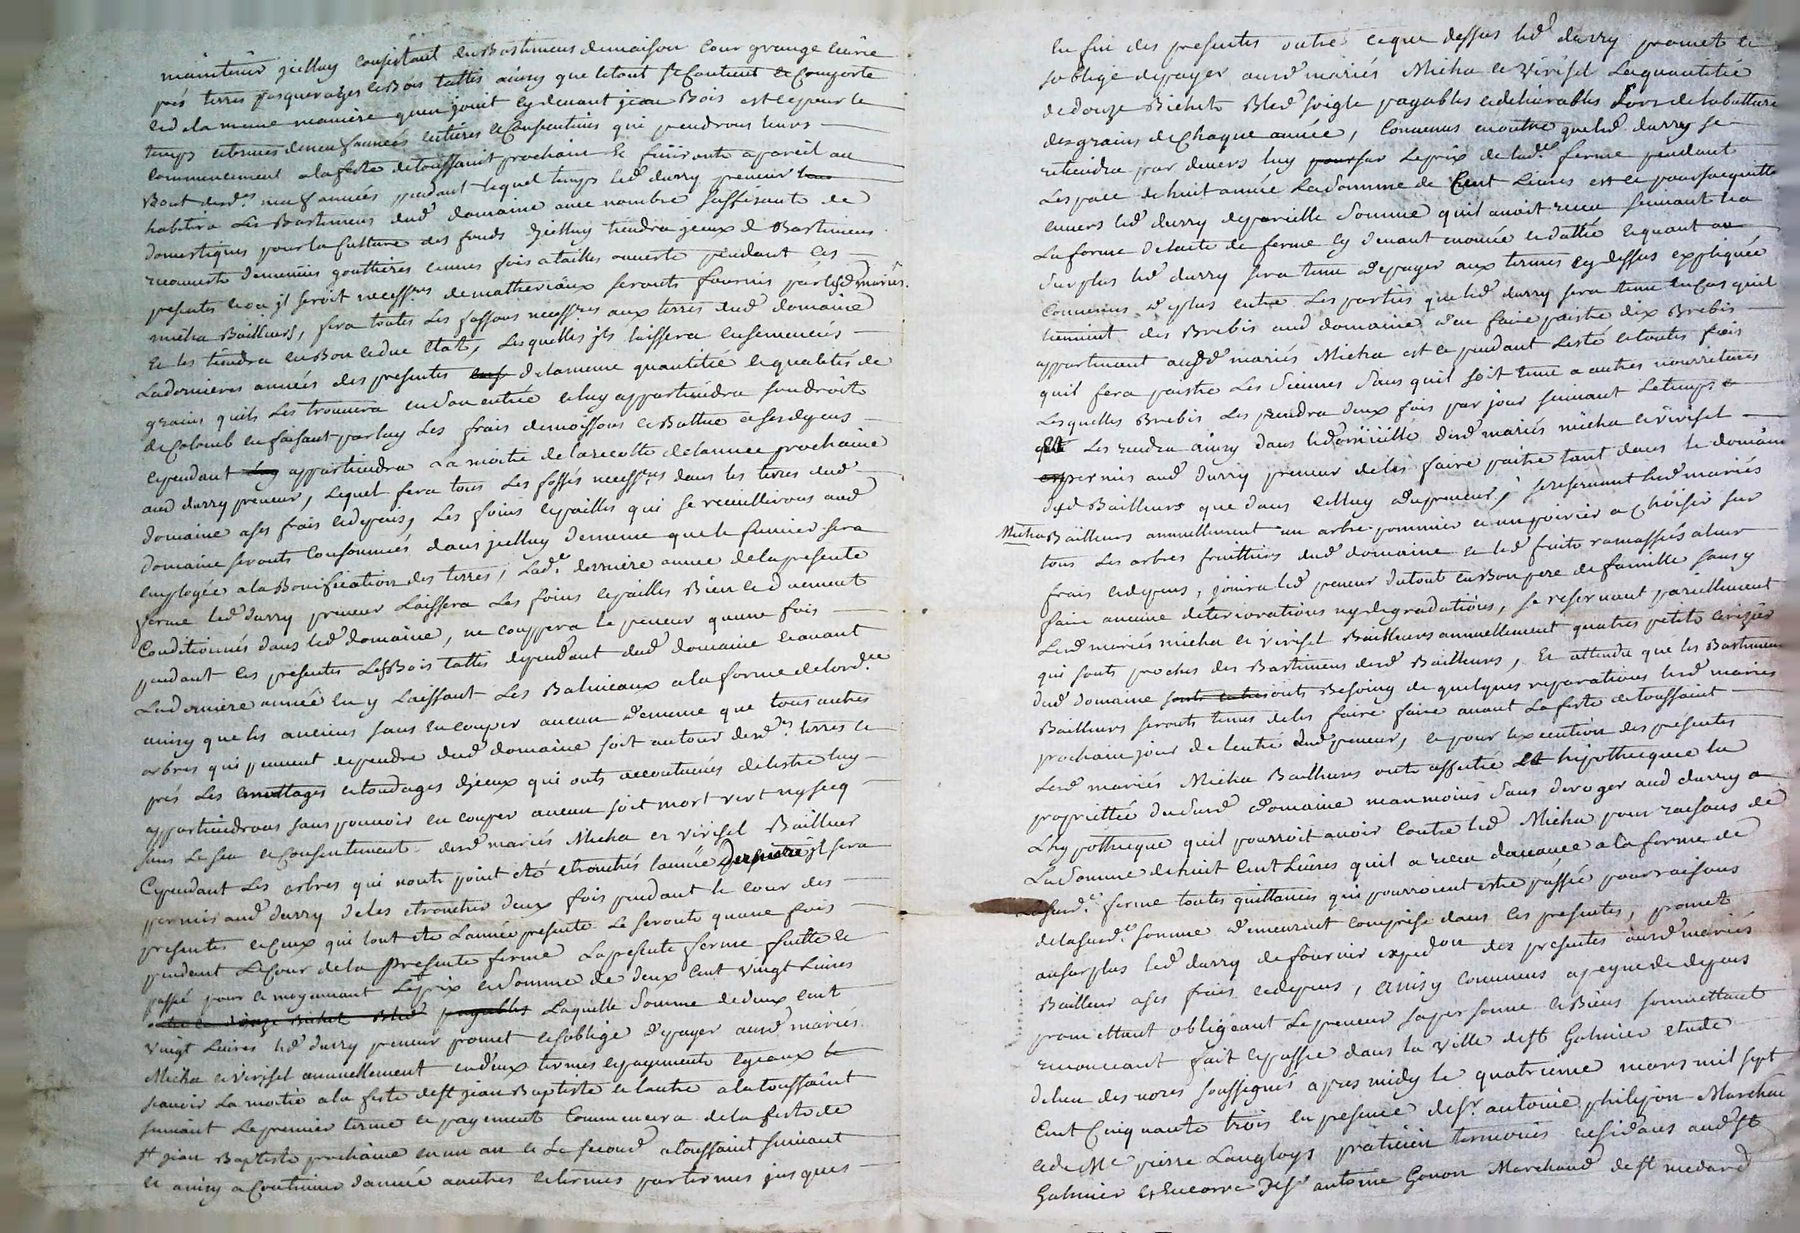 maintenir jcelluy consistant en Bastimens de maison cour grange curie
prés terres pasquerages et Bois tallis ainsy que le tout se Contient et Comporte
et de la meme maniere quen jouit cy devant jean Bois et ce pour le
temps et termes de neuf années entieres et Consecutives qui prendront leurs
commencement a la feste de toussaint prochaine Et finiront a pareil au
Bout desd.es neuf années pendant lequel temps led. durry preneur
habitera Les Bastimens dud. domaine avec nombre suffisante de
domestiques pour la Culture des fonds jcelluy tiendra jceux Bastimens
recouverts de menues gouttieres une fois a tailles ouverte pendant les
presentes et ou jl seroit necess.re de matheriaux seronts fournis par lesd. mariés
micha Bailleurs, fera toutes Les fassons necess.res aux terres dud. domaine
Et les tiendra en Bon et due Etat, Lesquelles jl laissera ensemencés
La dernieres années des presentes de la meme quantitée et qualités de
grains quil Les trouvera en son entrée et luy appartiendra son droit
de Colomb en faisant par luy Les frais de moissons et Battue a ses depens
cependant appartiendra La moitie de la recolte de lannee prochaine
aud. durry preneur, Lequel fera tous Les fossés necess.res dans les terres dud.
domaine a ses frais et depens, Les foins et pailles qui se recuilliront aud.
domaine seronts Consommés dans jcelluy de meme que le fumier sera
employée a la Bonification des terres, Lad.e derniere annee de la presente
ferme led. durry preneur Laissera Les foins et pailles Bien et duement
Conditionnés dans led. domaine, ne couppera le preneur qu'une fois
pendant les presentes Les Bois tallis dependant dud. domaine et avant
La derniere année en y Laissant Les Baliveaux a la forme de lord.ce
ainsy que les anciens sans en couper aucun de meme que tous autres
arbres qui peuvent dependre dud. domaine soit autour desd. terres et
prés Les emuttages et tondages djceux qui onts accoutumés de lestre luy
appartiendront sans pouvoir en couper aucun soit mort vert ny secq
sans Le seu et Consentement desd. mariés Micha et virisel Bailleur
Cependant Les arbres qui nonts point eté etronchés lannée derniere jl sera
permis aud. durry de les etroncher deux fois pendant le cour des
presentes et Ceux qui lont eté L'année presente Le seronts qu'une fois
pendant Le Cour de la Presente ferme La presente ferme faitte et
passé pour et moyennant Le prix et somme de deux Cent vingt Livres
outre et douze Bichet Bled payables Laquelle somme de deux cent
vingt Livres led. durry preneur promet et soblige de payer ausd. mariés
Micha et virisel annuellement en deux termes et payements egeaux
scavoir La moitie a la feste de st jean Baptiste et lautre a la toussaint
suivant Le premier terme et payement Commencera de la feste de
st jean Baptiste prochaine en un an et Le second a toussaint suivant
et ainsy a Continuer d'année a autres et termes par termes jusques
En fin des presentes outre ce que dessus led. durry promet et
soblige de payer ausd. mariés Micha et virisel La quantitée
de douze Bichets Bled soigle payables et delivrables Lors de la batture
des grains de Chaque année, Convenus en outre que led. durry se
retiendra par devers luy sur Le prix de lad.e ferme pendant
Lespace de huit année La somme de Cent Livres et ce pour sacquitter
envers led. durry de pareille somme quil avoit receu suivant et a
La forme de lacte de ferme cy devant enoncée et dattée et quant au
surplus led. durry sera tenu de payer aux termes cy dessus expliquée
Convenus de plus entre Les parties que led. durry sera tenu en cas quil
tiennent des Brebis aud. domaine den faire paistre dix Brebis
appartenant ausd. mariés Micha et ce pendant Lesté et toutes fois
quil fera paistre Les siennes sans quil soit tenu a autres nourritures
Lesquelles Brebis Les prendra deux fois par jour suivant Le temps et
Les rendra ainsy dans le domicille desd. mariés micha et virisel
permis aud. durry preneur de les faire paitre tant dans le domaine
desd. Bailleurs que dans celluy du preneur, se reservant lesd. mariés
Micha Bailleurs annuellement un arbre pommier et un poirier a Choisir sur
tous Les arbres fruittiers dud. domaine et led. fruits ramassés a leur
frais et depens, jouira led. preneur du tout en Bon pere de famille sans y
faire aucune deteriorations ny degradations, se reservant pareillement
Lesd. mariés micha et virisel Bailleurs annuellement quatres petits cerisier
qui sonts proches des Bastimens desd. Bailleurs, Et attendu que les Bastimens
dud. domaine onts Besoing de quelques reparations lesd. mariés
Bailleurs seronts tenus de les faire faire avant La feste de toussaint
prochain jour de lentré dud. preneur, et pour lexecution des presentes
Lesd. mariés Micha Bailleurs onts affectée Et hipothequée La
proprietté dudsusd. domaine neanmoins sans deroger aud. durry a
Lhypotheque quil pourroit avoir Contre led. Micha pour raisons de
La somme de huit Cent Livres quil a receu davance a la forme de
lasusd.e ferme toutes quittances qui pourroient estre passée pour raisons
de lasusd.e somme demeurent comprise dans Les presentes, promet
au surplus led. durry de fournir expedon des presentes ausd. mariés
Bailleur a ses frais et depens, Ainsy Convenus a peyne de depens
promettant obligeant Le preneur sa personne et Biens soumettant
renonceant fait et passée dans la ville de st Galmier etude
de lun des nores soussignés apres midy le quatrieme mars mil sept
Cent Cinquante trois en presence de sr. antoine philipon Marchand
et de Me pierre Langloys praticien temoins residans aud. st
Galmier et Encorre de sr. antoine Gonon Marchand de st medard